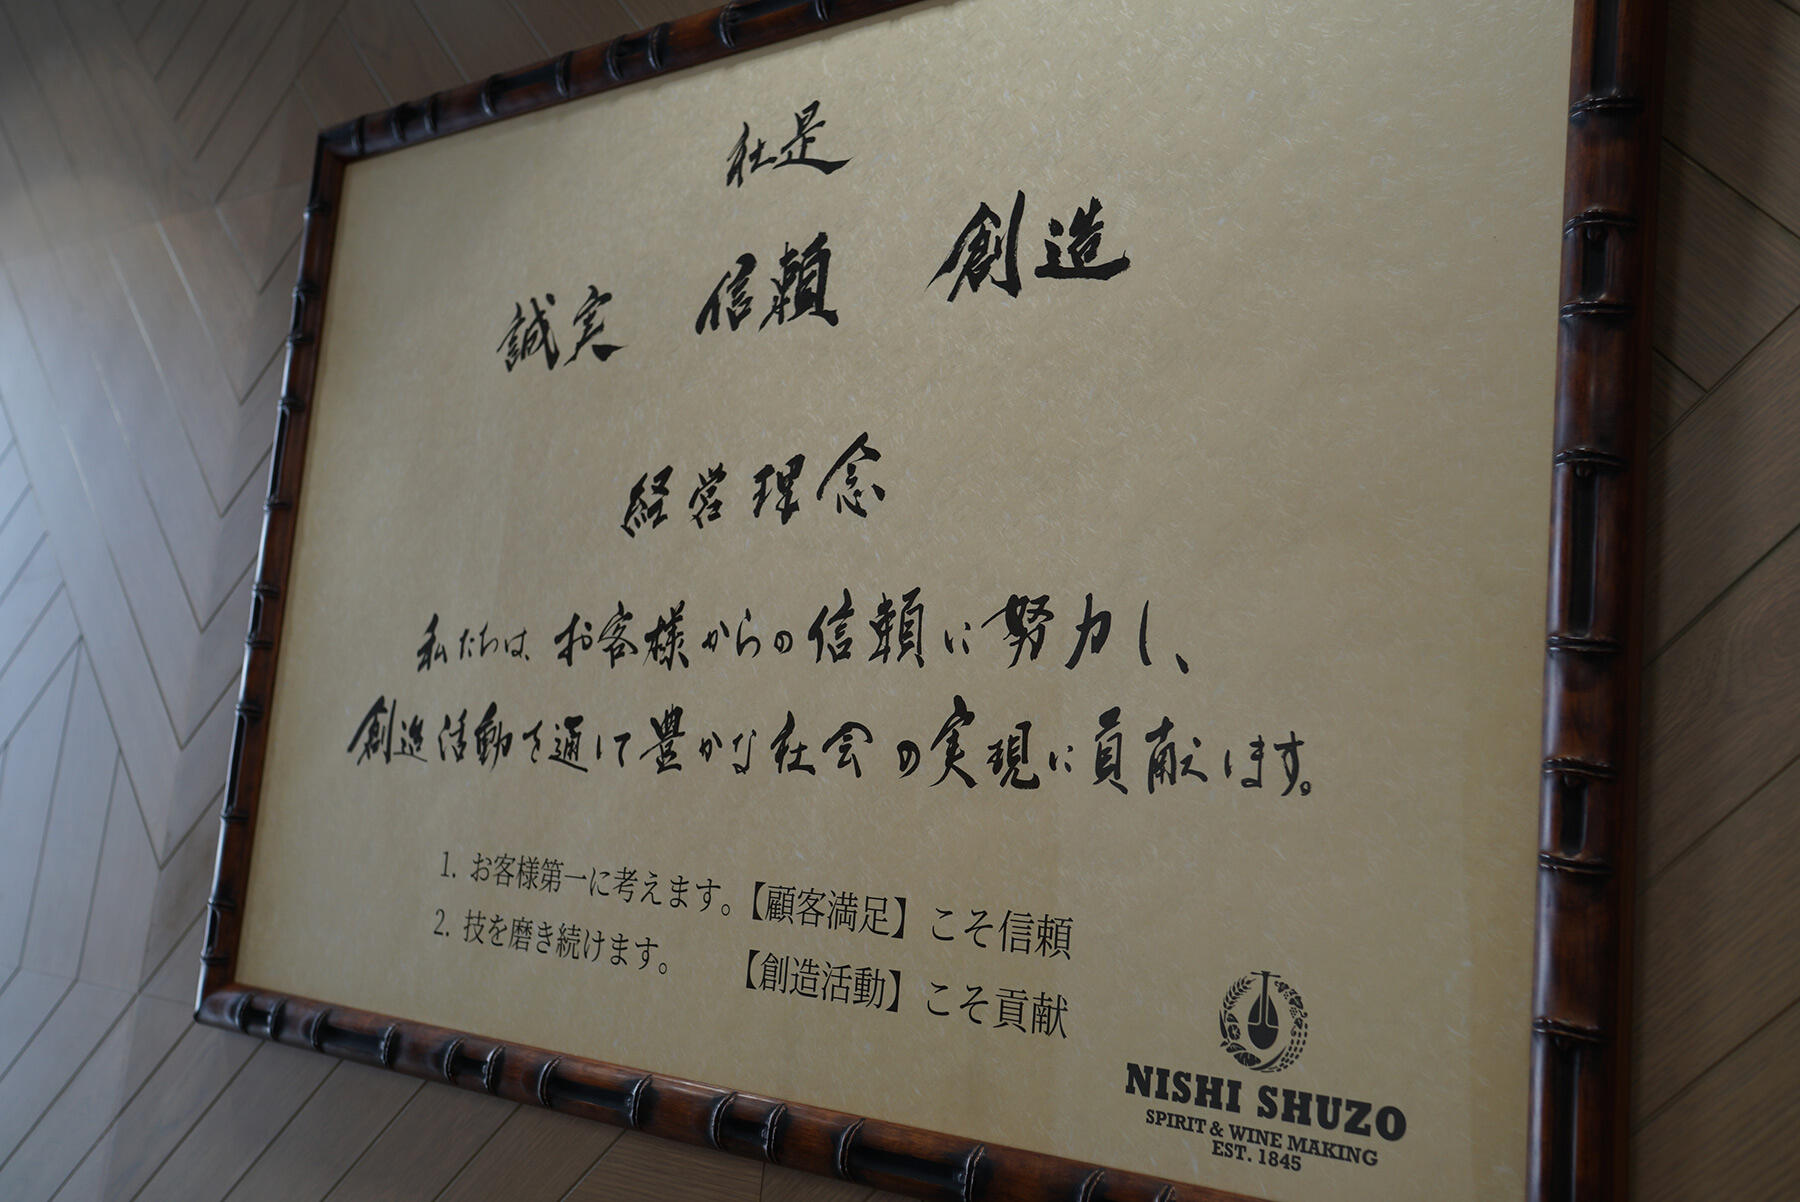 社是
誠実 信頼 創造
経営理念
私たちは、お客様からの信頼に努力し、
創造活動を通じて豊かな社会の実現に貢献します。
1. お客様第一に考えます。【顧客満足】こそ信頼
2. 技を磨き続けます。 【創造活動】こそ貢献
NISHI SHUZO
SPIRIT & WINE MAKING
EST. 1845